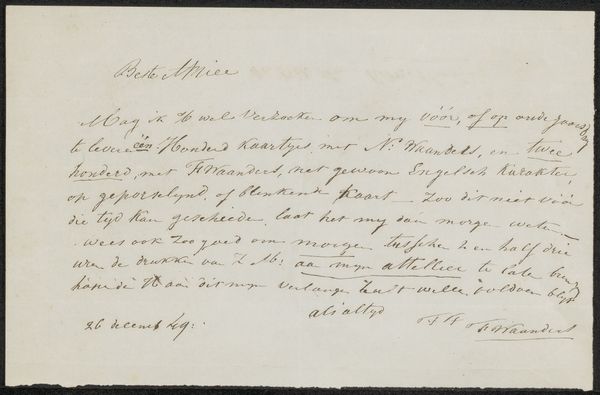 Beste Mier
Mag ik U wel verzoeken om my vóór, of op oude jaars dag
te levere één Honderd Kaartjes met N. Waanders, en twee
honderd, met F Waanders, met gewoon Engelsch Karakter,
op geporselynd, of blinkende Kaart – Zoo dit niet vóór
die tyd kan geschieden, laat het my dan morge weten –
wees ook zoo goed om morge tusschen en half drie
ure de drukken van Z M: aa mijn attellier te late
U aa dit myn verlange zult wille voldoen blyf
als altyd
26 decemb 49: F Waanders